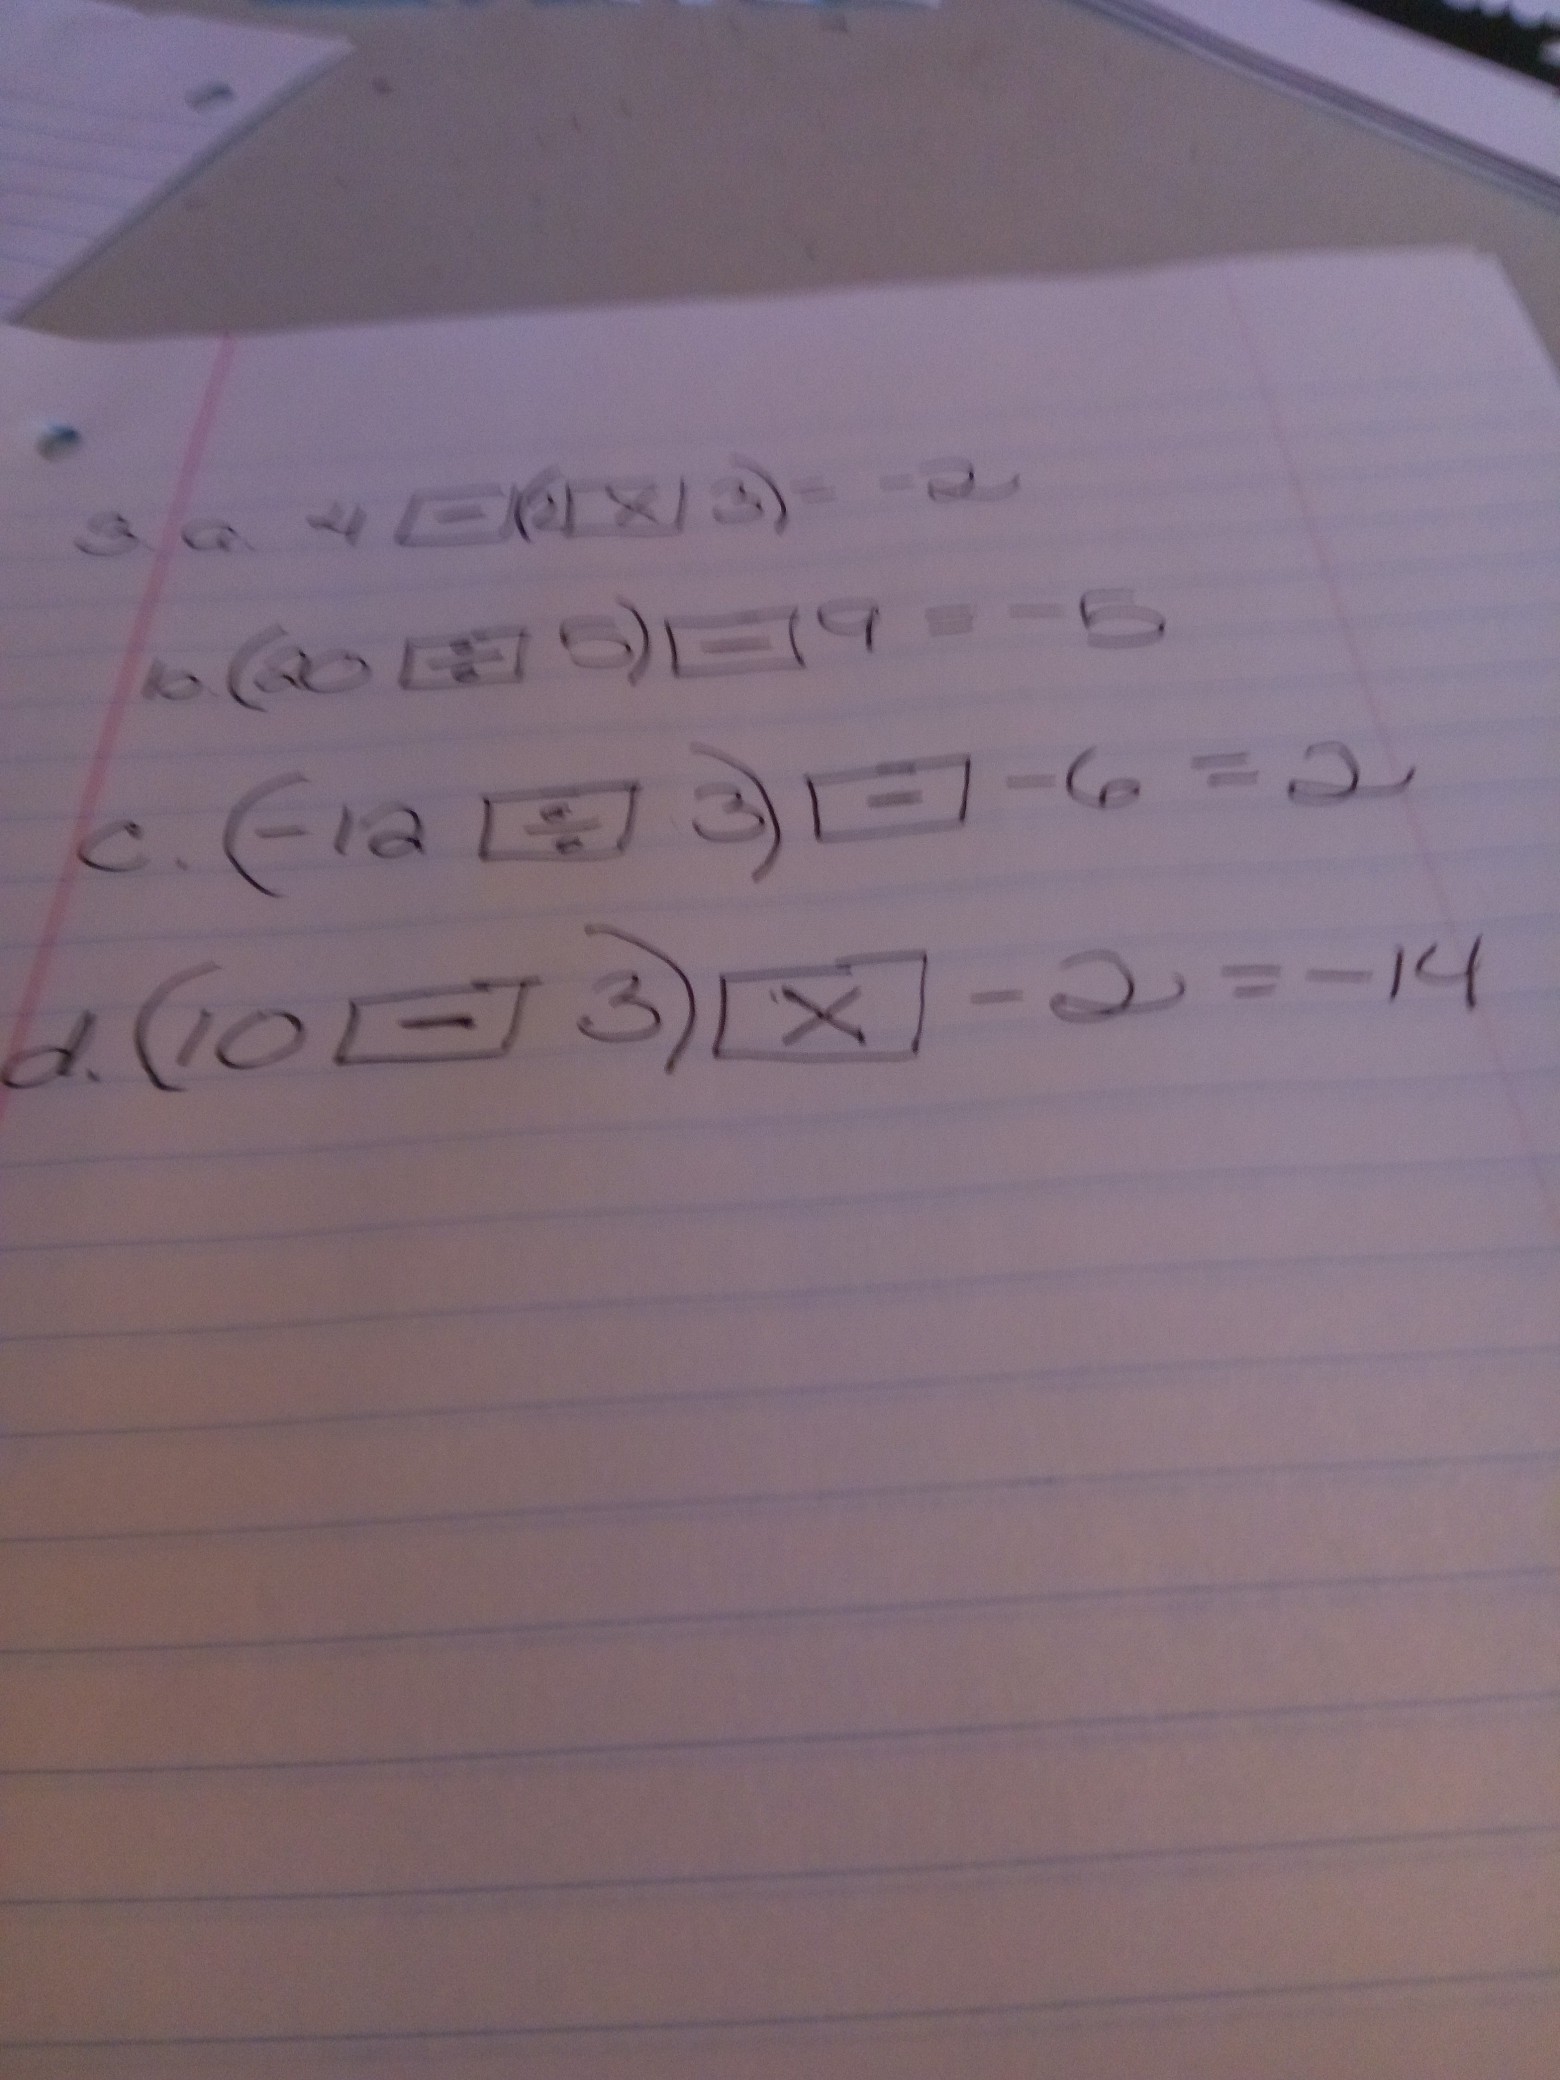 3. a. 4 [-] (2 [x] 3) = -2
b. (20 [÷] 5) [-] 9 = -5
c. (-12 [÷] 3) [-] -6 = 2
d. (10 [-] 3) [x] -2 = -14